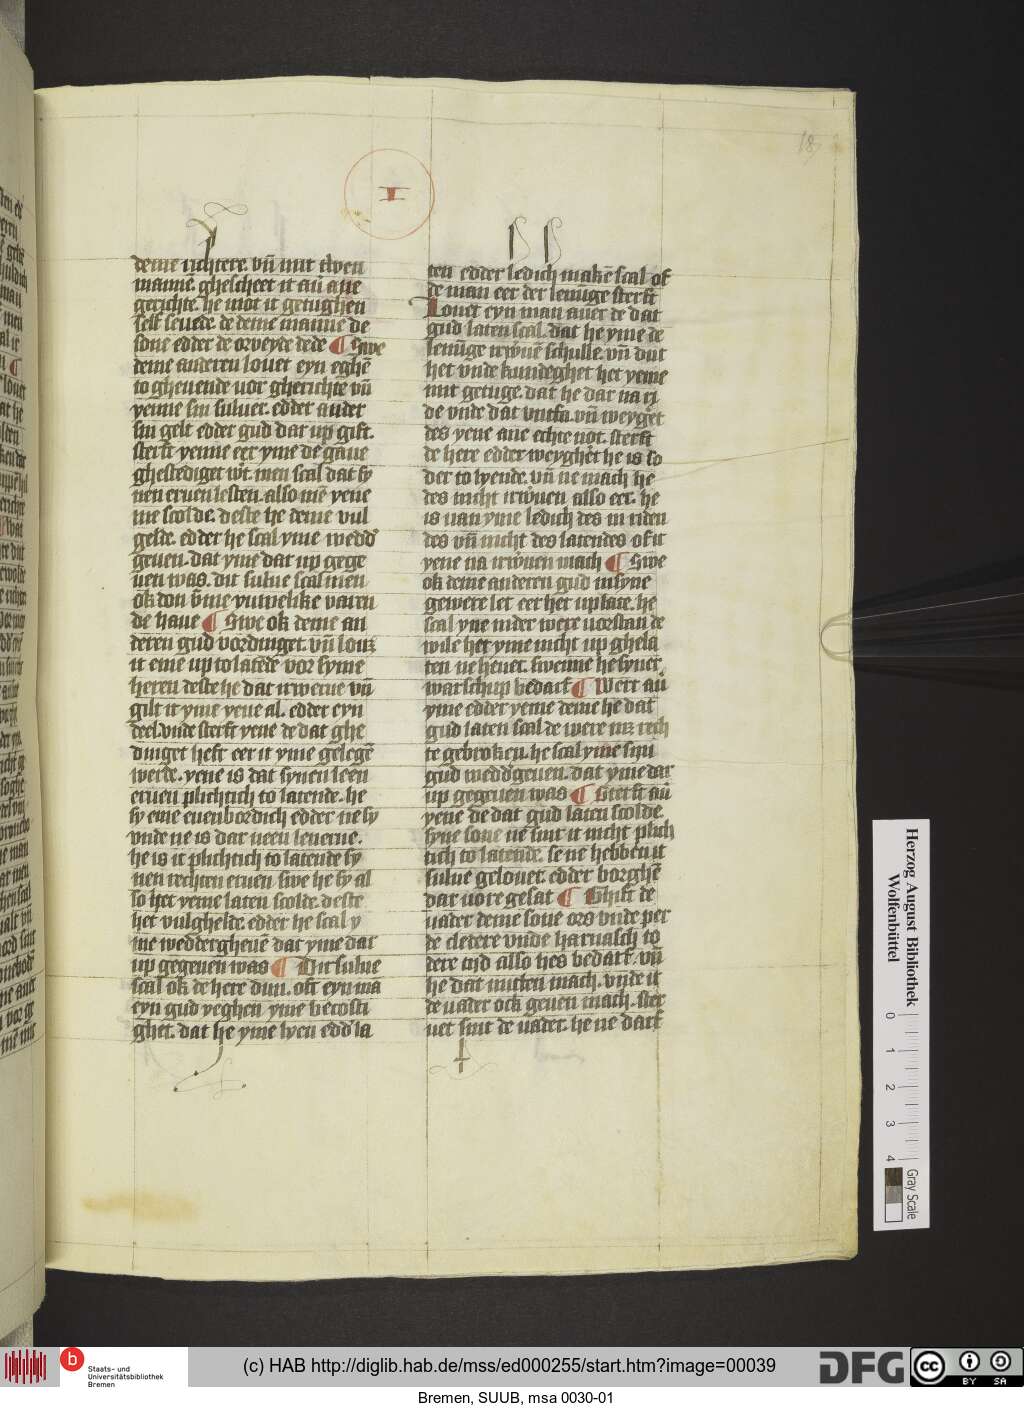 18
I
deme richtere. vn̄ mit tven
mannē. ghescheet it au̅ ane
gerichte. he mot it getughen
self seuede. de deme manne de
sone edder de orveyde dede ¶ Swe
deme anderen louet eyn eghē
to gheuende vor gherichte vn̄
yenne sin suluer. edder ander
sin gelt edder gud dar up gift.
sterft yenne eer yme de gaue
ghestediget wt. men scal dat sy
nen eruen lesten. also mē yene
me scolde. deste he deme vul
gelde. edder he scal yme wedd'
geuen. dat yme dar up gege
uen was. dit sulue scal men
ok don vme yuwelike varen
de haue ¶ Swe ok deme an
deren gud vordinget. vn̄ loue
it eme up to latēde vor syme
heren deste he dat irwerue vn̄
gilt it yme yene al. edder eyn
deel. vnde sterft yene de dat ghe
dinget heft eer it yme gelegē
werde. yene is dat synen leen
eruen plichtich to latende. he
sy eme euenbordich edder ne sy
vnde ne is dar neen leuerue.
he is it plichtich to latende sy
nen rechten eruen swe he sy al
so het yeme laten scolde. deste
het vulghelde. edder he scal y
me weddergheuē dat yme dar
up gegeuen was ¶ Dit sulue
scal ok de here dun. oft eyn mā
eyn gud yeghen yme becosti
ghet. dat he yme lyen edd' la
ten edder ledich makē scal of
de man eer der lenu̅ge sterft
Louet eyn man auer de dat
gud laten scal. dat he yme de
lenu̅ge irwruē schulle. vn̄ dut
het vnde kundeghet het yeme
mit getuge. dat he dar na ri
de vnde dat vntfa. vn̄ weyget
des yene ane echte not. sterft
de here edder weyghet he is so
der to lyende. vn̄ ne mach he
des nicht irwruen also eer. he
is van yme ledich des in riden
des vn̄ nicht des latendes of it
yene na irwruen mach ¶ Swe
ok deme anderen gud in syne
gewere let eer het uplate. he
scal yne inder were vorstan de
wile het yme nicht up ghela
ten ne heuet. swenne he syner
warschup bedarf ¶ Wert au̅
yme edder yeme deme he dat
gud laten scal de were mit rech
te gebroken. he scal yme sin
gud wedd'geuen. dat yme dar
up gegeuen was ¶ Sterft au̅
yene de dat gud laten scolde.
syne sone ne sint it nicht plich
tich to latende. se ne hebben it
sulue gelouet. edder borghē
dar vore gesat ¶ Ghift de
vader deme sone ors vnde per
de cledere vnde harnasch to
dere tyd also hes bedarf. vn̄
he dat nutten mach. vnde it
de vader ock geuen mach. ster
uet sint de vader. he ne darf
Herzog August Bibliothek
Wolfenbüttel
0 1 2 3 4
Gray Scale
b
Staats- und
Universitätsbibliothek
Bremen
(c) HAB http://diglib.hab.de/mss/ed000255/start.htm?image=00039
DFG
cc BY SA
Bremen, SUUB, msa 0030-01